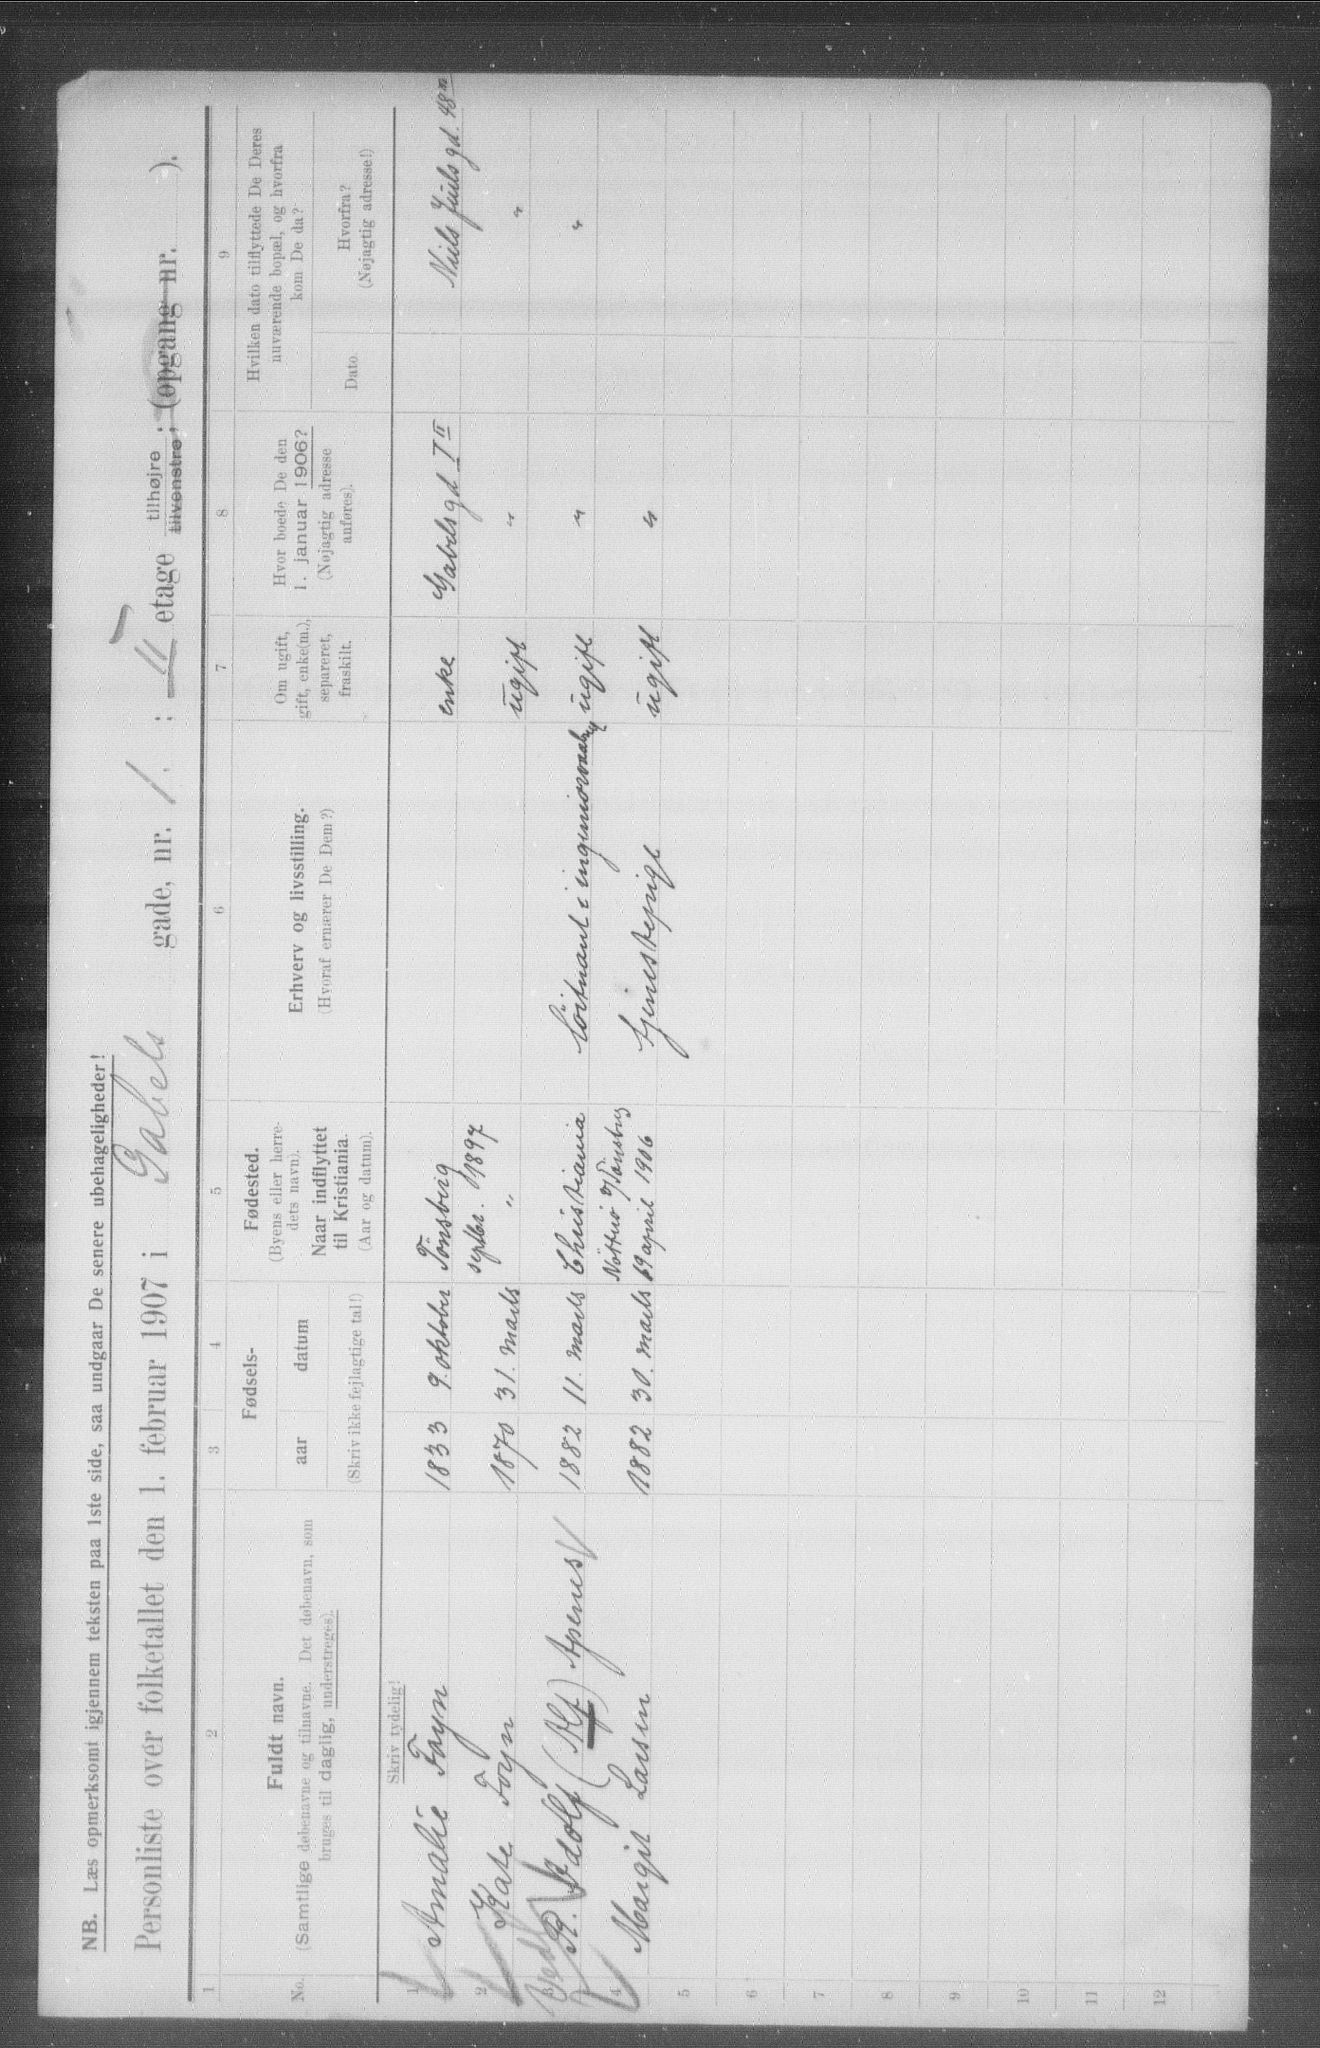 NB. Læs opmerksomt igjennem teksten paa 1ste side, saa undgaar De senere ubehageligheder!
Personliste over folketallet den 1. februar 1907 i Gabels gade, nr. 1. : II etage tilhøjre tilvenstre; (opgang nr. ).
1 2 3 4 5 6 7 8 9
No.
Fuldt navn.
(Samtlige døbenavne og tilnavne. Det døbenavn, som
bruges til daglig, understreges).
Fødsels-
aar datum
(Skriv ikke fejlagtige tal!)
Fødested.
(Byens eller herre-
dets navn).
Naar indflyttet
til Kristiania.
(Aar og datum).
Erhverv og livsstilling.
(Hvoraf ernærer De Dem?)
Om ugift,
gift, enke(m.),
separeret,
fraskilt.
Hvor boede De den
1. januar 1906?
(Nøjagtig adresse
anføres).
Hvilken dato tilflyttede De Deres
nuværende bopæl, og hvorfra
kom De da?
Dato.
Hvorfra?
(Nøjagtig adresse!)
Skriv tydelig!
1 Amalie Foyn 1833 9. oktober Tönsberg enke Gabels gd I II Niels Juels gd. 48 III
septbr. 1897
2 Kate Foyn 1870 31. marts " ugift " "
3 R. Adolf (Alf) Apenes 1882 11. marts Christiania löitnant i ugift " "
Nötterö v/ Tönsberg
4 Margit Larsen 1882 30. marts 19 april 1906 tjenestepige ugift "
5
6
7
8
9
10
11
12